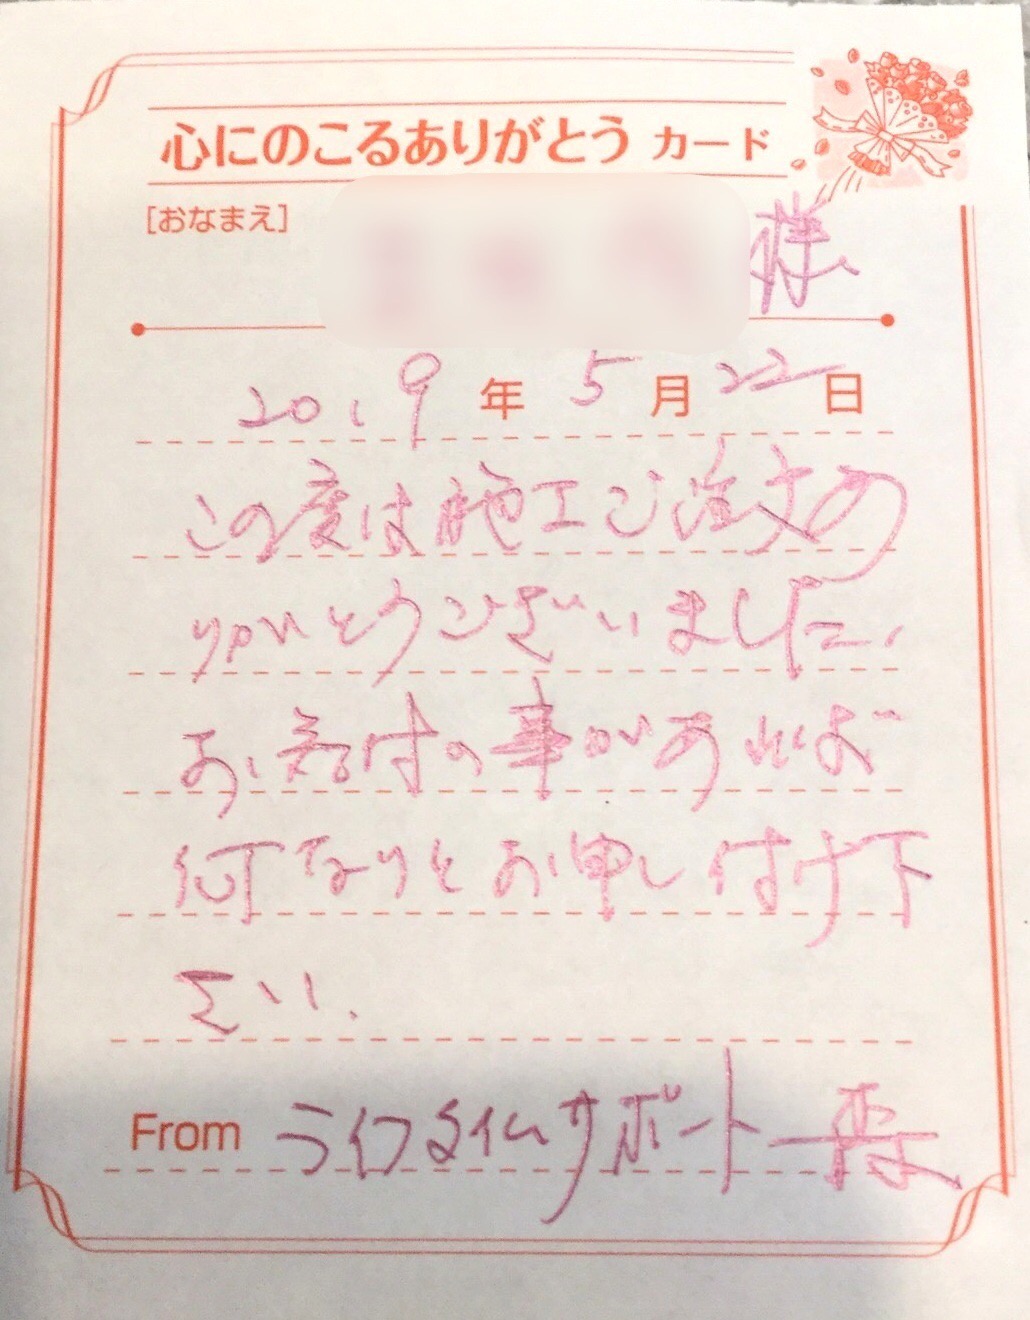 心にのこるありがとう カード
[おなまえ]
様
2019年 5月 22日
この度は施工ご注文あ
りがとうございました。
お気付の事があれば
何なりとお申し付け下
さい.
From ライフタイムサポート一同